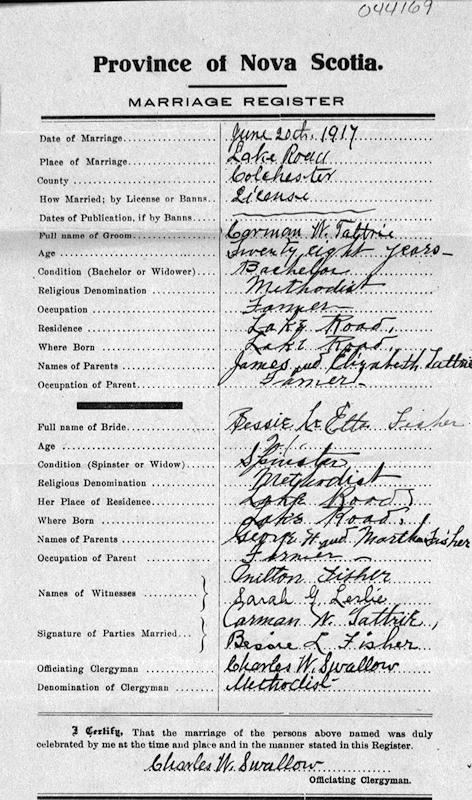 044169
Province of Nova Scotia.
MARRIAGE REGISTER
Date of Marriage June 20th, 1917
Place of Marriage Lake Road
County Colchester
How Married; by License or Banns License
Dates of Publication, if by Banns
Full name of Groom Carman W. Tattrie
Age Twenty eight years
Condition (Bachelor or Widower) Bachelor
Religious Denomination Methodist
Occupation Farmer
Residence Lake Road,
Where Born Lake Road,
Names of Parents James and Elizabeth Tattrie
Occupation of Parent Farmer
Full name of Bride Bessie Etta Fisher
Age
Condition (Spinster or Widow) Spinster
Religious Denomination Methodist
Her Place of Residence Lake Road,
Where Born Lake Road,
Names of Parents George H and Martha Fisher
Occupation of Parent Farmer
Names of Witnesses } Milton Fisher
Sarah G Leslie
Signature of Parties Married } Carman W. Tattrie,
Bessie L. Fisher
Officiating Clergyman Charles W. Swallow
Denomination of Clergyman Methodist
I Certify, That the marriage of the persons above named was duly
celebrated by me at the time and place and in the manner stated in this Register.
Charles W. Swallow
Officiating Clergyman.